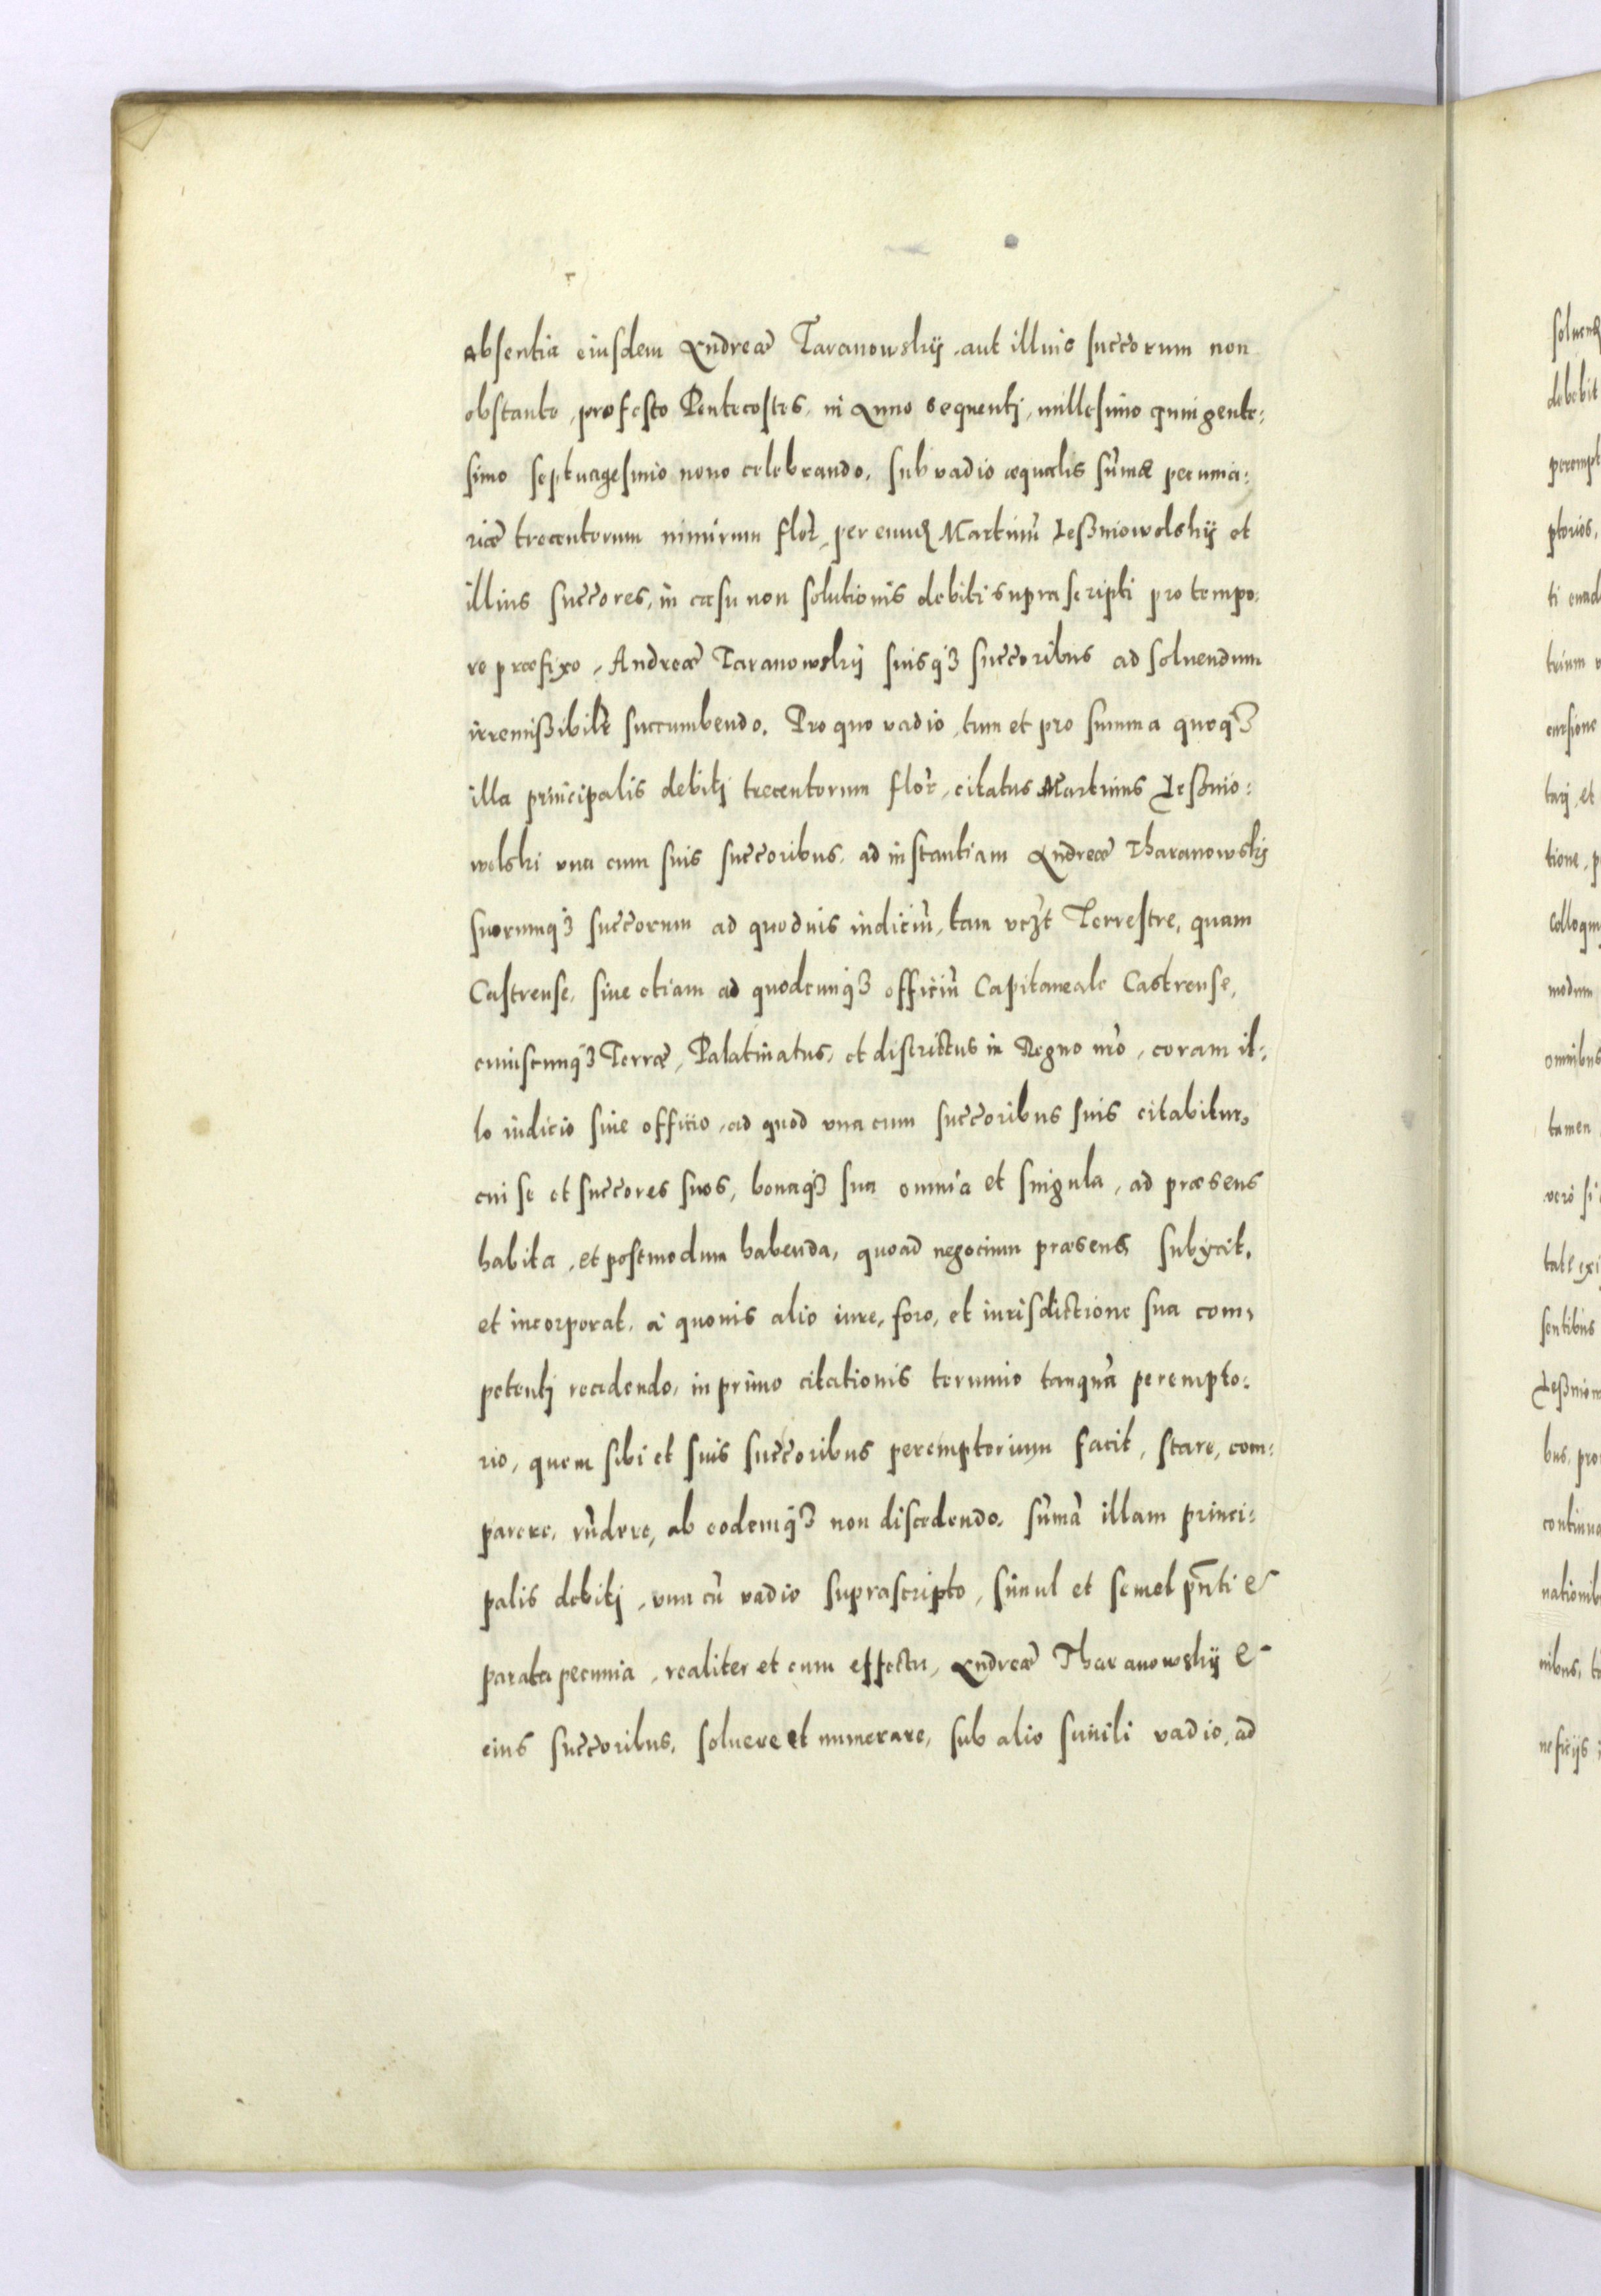 absentia eiusdem Andreæ Taranowskij, aut illius succorum non
obstante, pro festo Pentecostes, in Anno sequentj, millesimo quingente:
simo septuagesimo nono celebrando, sub vadio æqualis sumæ pecunia:
riæ trecentorum nimirum flor, per eund Martinu Leßniowolskij et
illius succores, in casu non solutionis debiti suprascripti pro tempo:
re præfixo, Andreæ Taranowskij suisq3 succoribus ad soluendum
irremißibilr succumbendo. Pro quo vadio, tum et pro summa quoq3
illa principalis debitj trecentorum flor, citatus Martinus Leßnio:
wolski vna cum suis succoribus, ad instantiam Andreæ Tharanowskij
suorumq3 succorum ad quoduis iudiciu, tam vczt Terrestre, quam
Castrense, siue etiam ad quodcunq3 officiu Capitaneale Castrense,
cuiuscunq3 Terræ, Palatinatus, et districtus in Regno nro, coram il:
lo iudicio siue officio, ad quod vna cum succoribus suis citabitur,
cui se et succores suos, bonaq3 sua omnia et singula, ad præsens
habita, et postmodum habenda, quoad negocium præsens subijcit,
et incorporat, à quouis alio iure, foro, et iurisdictione sua com:
petentj recedendo, in primo citationis termino tanqua perempto:
rio, quem sibi et suis succoribus peremptorium facit, stare, com:
parere, rndere, ab eodemq3 non discedendo, suma illam princi:
palis debitj, vna cu vadio suprascripto, simul et semel pnti &
parata pecunia, realiter et cum effectu, Andreæ Tharanowskij &
eius succoribus, soluere et numerare, sub alio simili vadio, ad